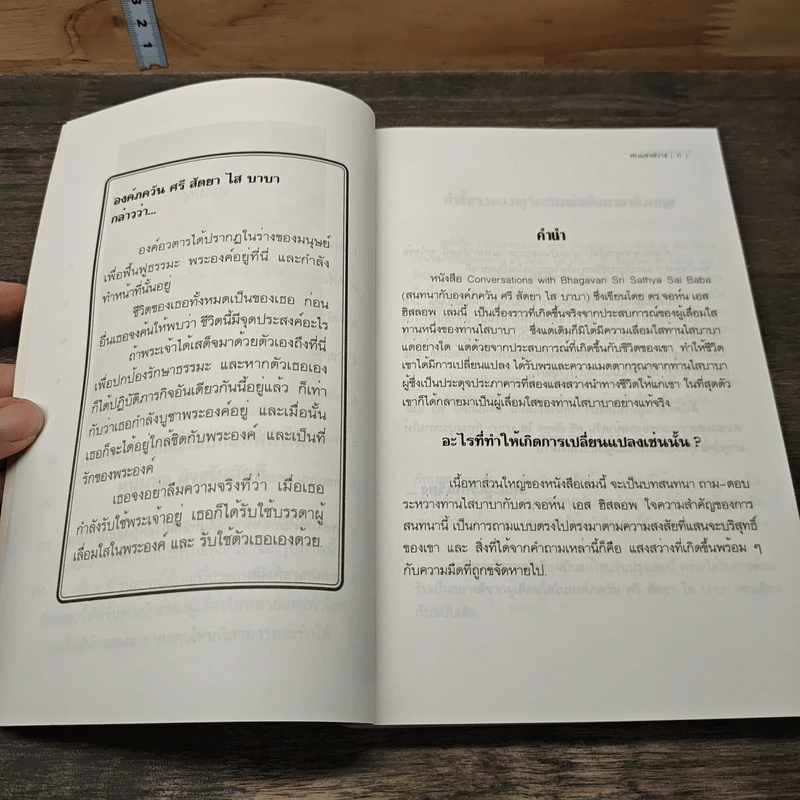 3
2
1
องค์ภควัน ศรี สัตยา ไส บาบา
กล่าวว่า...
องค์อวตารได้ปรากฏในร่างของมนุษย์
เพื่อฟื้นฟูธรรมะ พระองค์อยู่ที่นี่ และกำลัง
ทำหน้าที่นั้นอยู่
ชีวิตของเธอทั้งหมดเป็นของเธอ ก่อน
อื่นเธอจงค้นให้พบว่า ชีวิตนี้มีจุดประสงค์อะไร
ถ้าพระเจ้าได้เสด็จมาด้วยตัวเองถึงที่นี่
เพื่อปกป้องรักษาธรรมะ และหากตัวเธอเอง
ก็ได้ปฏิบัติภารกิจอันเดียวกันนี้อยู่แล้ว ก็เท่า
กับว่าเธอกำลังบูชาพระองค์อยู่ และเมื่อนั้น
เธอก็จะได้อยู่ใกล้ชิดกับพระองค์ และเป็นที่
รักของพระองค์
เธอจงอย่าลืมความจริงที่ว่า เมื่อเธอ
กำลังรับใช้พระเจ้าอยู่ เธอก็ได้รับใช้บรรดาผู้
เลื่อมใสในพระองค์ และ รับใช้ตัวเธอเองด้วย.
พบแสงสว่าง | ก |
คำนำ
หนังสือ Conversations with Bhagavan Sri Sathya Sai Baba
(สนทนากับองค์ภควัน ศรี สัตยา ไส บาบา) ซึ่งเขียนโดย ดร.จอห์น เอส
ฮิสลอพ เล่มนี้ เป็นเรื่องราวที่เกิดขึ้นจริงจากประสบการณ์ของผู้เลื่อมใส
ท่านหนึ่งของท่านไสบาบา ซึ่งแต่เดิมก็มิได้มีความเลื่อมใสท่านไสบาบา
แต่อย่างใด แต่ด้วยจากประสบการณ์ที่เกิดขึ้นกับชีวิตของเขา ทำให้ชีวิต
เขาได้มีการเปลี่ยนแปลง ได้รับพรและความเมตตากรุณาจากท่านไสบาบา
ผู้ซึ่งเป็นประดุจประภาคารที่ส่องแสงสว่างนำทางชีวิตให้แก่เขา ในที่สุดตัว
เขาก็ได้กลายมาเป็นผู้เลื่อมใสของท่านไสบาบาอย่างแท้จริง
อะไรที่ทำให้เกิดการเปลี่ยนแปลงเช่นนั้น ?
เนื้อหาส่วนใหญ่ของหนังสือเล่มนี้ จะเป็นบทสนทนา ถาม-ตอบ
ระหว่างท่านไสบาบากับดร.จอห์น เอส ฮิสลอพ ใจความสำคัญของการ
สนทนานี้ เป็นการถามแบบตรงไปตรงมาตามความสงสัยที่แสนจะบริสุทธิ์
ของเขา และ สิ่งที่ได้จากคำถามเหล่านี้ก็คือ แสงสว่างที่เกิดขึ้นพร้อม ๆ
กับความมืดที่ถูกขจัดหายไป.